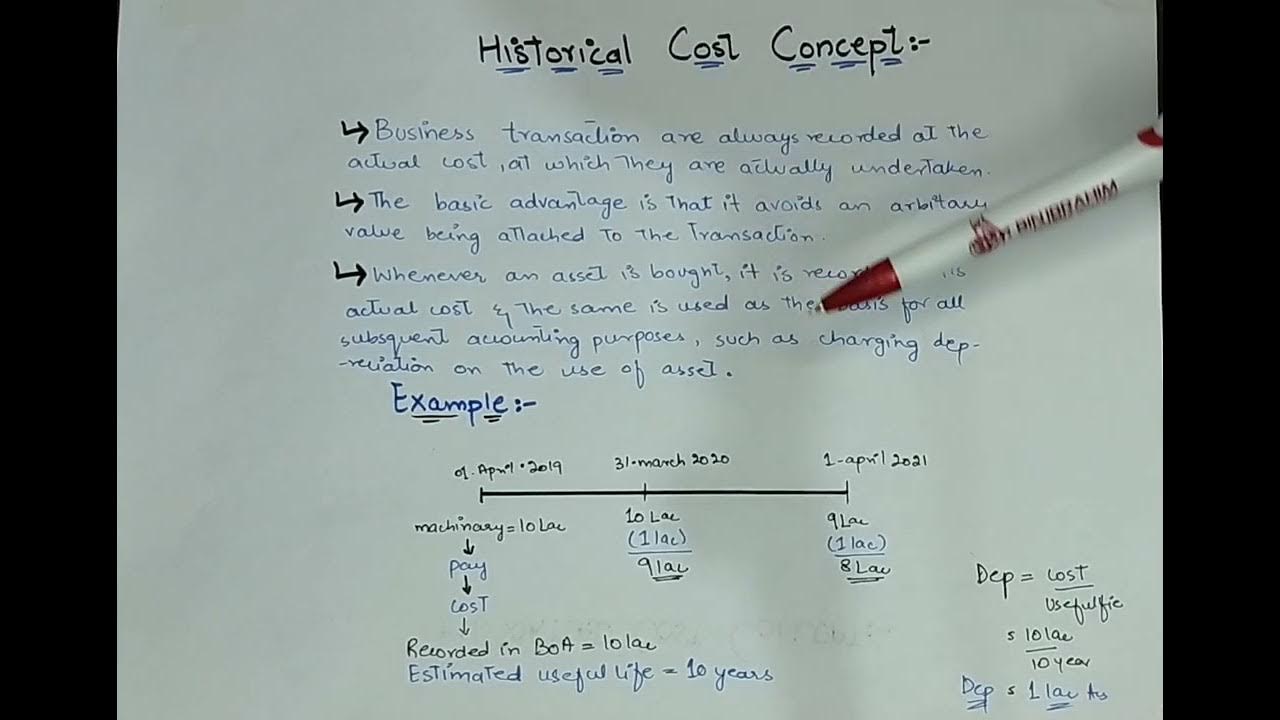 Historical Cost Concept:-
↳ Business transaction are always recorded at the
actual cost, at which they are actually undertaken.
↳ The basic advantage is that it avoids an arbitary
value being attached to the Transaction.
↳ Whenever an asset is bought, it is
actual cost & the same is used as the basis for all
subsquent accounting purposes, such as charging dep-
-reciation on the use of asset.
Example:-
01-April-2019 31-march 2020 1-april 2021
machinary = 10 Lac 10 Lac 9 Lac
↓ (1 lac) (1 lac)
pay 9 lac 8 Lac
↓
cost
↓
Recorded in BoA = 10 lac
Estimated useful life = 10 years
Dep = cost
= 10 lac
10 year
Dep = 1 lac